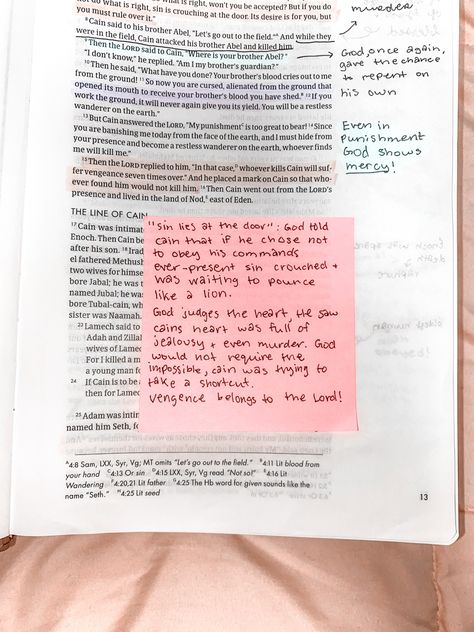 not do what is right, sin is crouching at the door. Its desire is for you, but
you must rule over it."
8 Cain said to his brother Abel, "Let's go out to the field."A And while they
were in the field, Cain attacked his brother Abel and killed him.
9 Then the LORD said to Cain, "Where is your brother Abel?"
"I don't know," he replied. "Am I my brother's guardian?"
10 Then he said, "What have you done? Your brother's blood cries out to me
from the ground! 11 So now you are cursed, alienated from the ground that
opened its mouth to receive your brother's blood you have shed.B 12 If you
work the ground, it will never again give you its yield. You will be a restless
wanderer on the earth."
13 But Cain answered the LORD, "My punishment is too great to bear! 14 Since
you are banishing me today from the face of the earth, and I must hide from
your presence and become a restless wanderer on the earth, whoever finds
me will kill me."
15 Then the LORD replied to him, "In that case, whoever kills Cain will suf-
fer vengeance seven times over." And he placed a mark on Cain so that who-
ever found him would not kill him. 16 Then Cain went out from the LORD's
presence and lived in the land of Nod, east of Eden.
murder
God, once again,
gave the chance
to repent on
his own
Even in
punishment
God shows
mercy!
THE LINE OF CAIN
17 Cain was intimat
Enoch. Then Cain be
after his son. 18 Irad
el fathered Methus
two wives for himse
bore Jabal; he was t
named Jubal; he wa
bore Tubal-cain, wh
sister was Naamah.
23 Lamech said to
Adah and Zillah
wives of Lamec
For I killed a m
a young man fo
24 If Cain is to be a
then for Lamec
25 Adam was intim
named him Seth, f
"sin lies at the door": God told
cain that if he chose not
to obey his commands
ever-present sin crouched +
was waiting to pounce
like a lion.
God judges the heart, He saw
cains heart was full of
jealousy + even murder. God
would not require the
impossible, cain was trying to
take a shortcut.
vengence belongs to the Lord!
A4:8 Sam, LXX, Syr, Vg; MT omits "Let's go out to the field." B4:11 Lit blood from
your hand C4:13 Or sin D4:15 LXX, Syr, Vg read "Not so!" E4:16 Lit
Wandering F4:20,21 Lit father G4:25 The Hb word for given sounds like the
name "Seth." H4:25 Lit seed
13